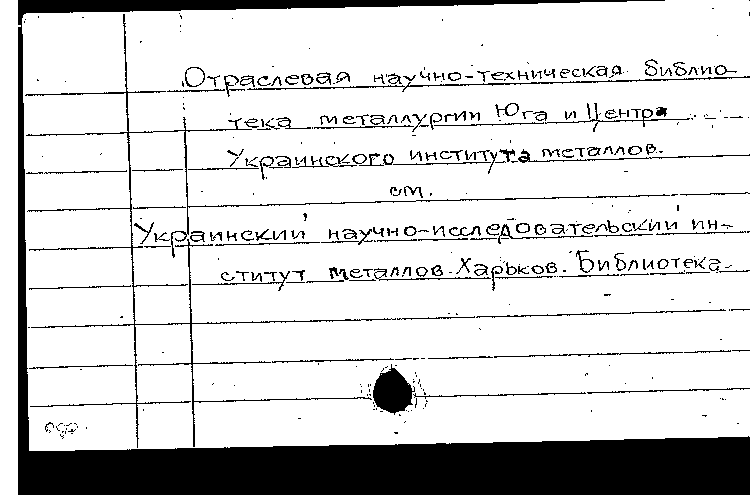 Отраслевая научно-техническая библио-
тека металлургии Юга и Центра
Украинского института металлов.
см.
Украинский научно-исследовательский ин-
ститут металлов. Харьков. Библиотека.